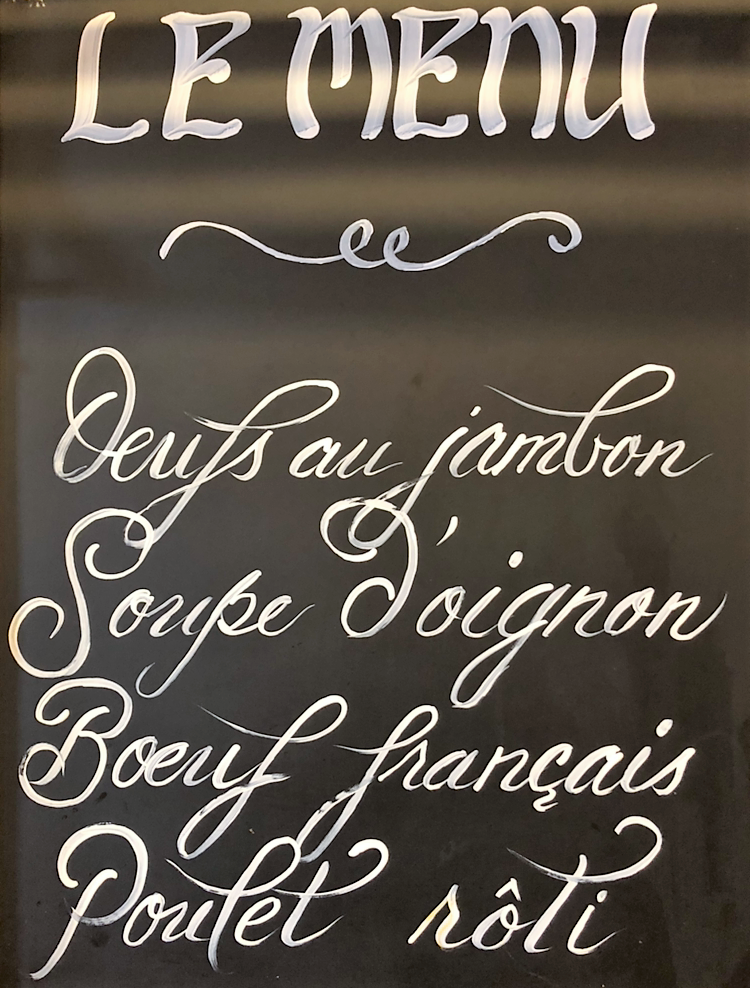 LE MENU
Oeufs au jambon
Soupe D'oignon
Boeuf français
Poulet rôti